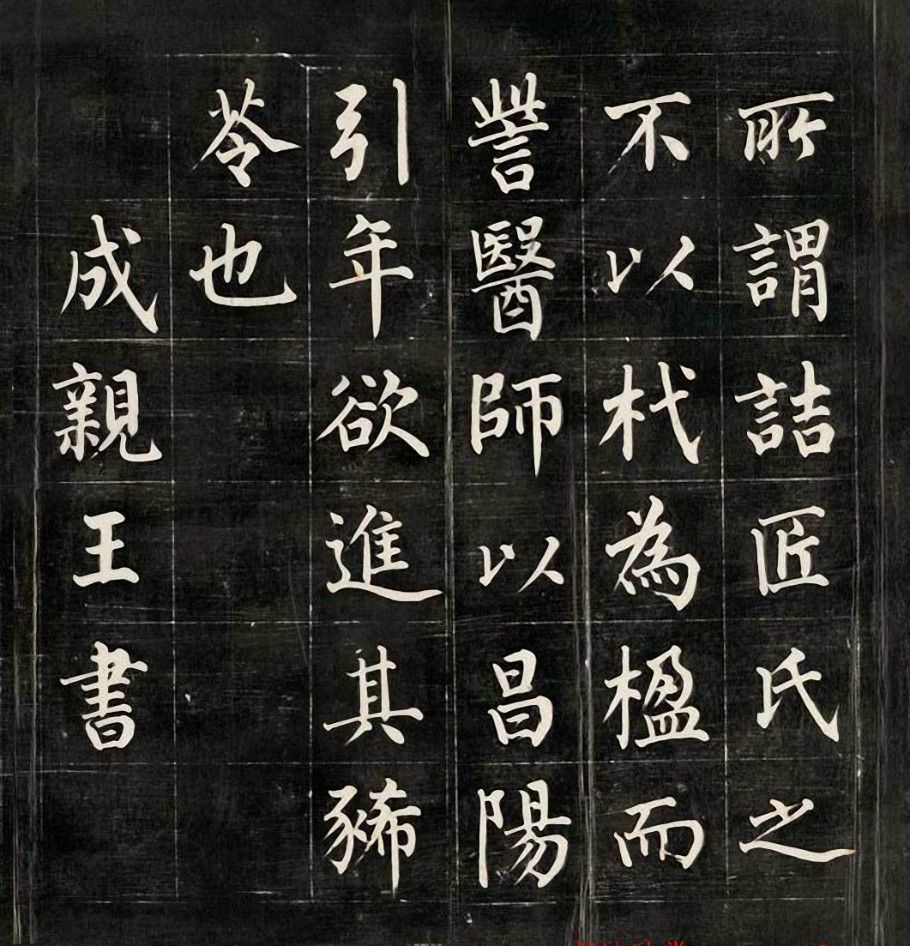 所謂詰匠氏之
不以杙為楹而
訾醫師以昌陽
引年欲進其豨
苓也
成親王書